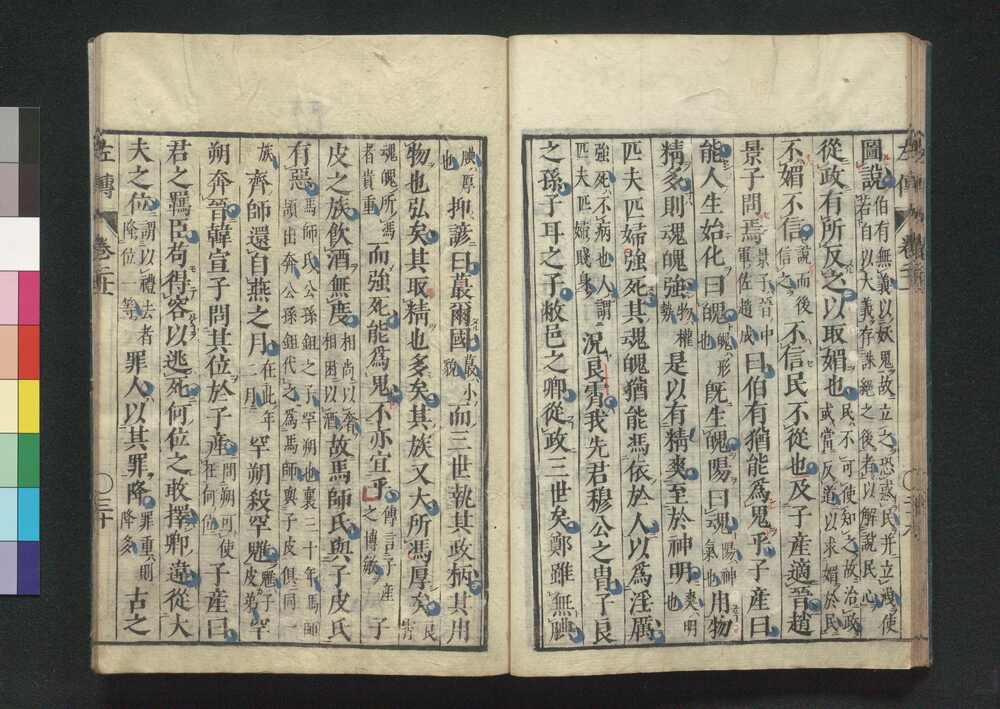 圖說伯有無義以妖鬼故立之恐惑民并立洩使若自以大義存誅絕之後者以解說民心
從政有所反之以取媚也民不可使知之故治政或當反道以求媚於民
不媚不信說而後信之不信民不從也及子產適晉趙
景子問焉景子晉中軍佐趙成曰伯有猶能爲鬼乎子產曰
能人生始化曰魄魄形也旣生魄陽曰魂陽神氣也用物
精多則魂魄強物權勢是以有精爽至於神明爽明也
匹夫匹婦強死其魂魄猶能馮依於人以爲淫厲
強死不病也人謂匹夫匹婦賤身況良霄我先君穆公之冑子良
之孫子耳之子敝邑之卿從政三世矣鄭雖無腆
腆厚也抑諺曰蕞爾國蕞小貌而三世執其政柄其用
物也弘矣其取精也多矣其族又大所馮厚矣良霄
魂魄所馮者貴重而強死能爲鬼不亦宜乎傳言子產之博敏子
皮之族飮酒無度相尚以奢相困以酒故馬師氏與子皮氏
有惡馬師氏公孫鉏之子罕朔也襄三十年馬師頡出奔公孫鉏代之爲馬師與子皮俱同一
族齊師還自燕之月在此年二月罕朔殺罕魋魋子皮弟罕
朔奔晉韓宣子問其位於子產問朔可使在何位子產曰
君之羈臣苟得容以逃死何位之敢擇卿違從大
夫之位謂以禮去者降位一等罪人以其罪降罪重則降多古之
左傳
三十